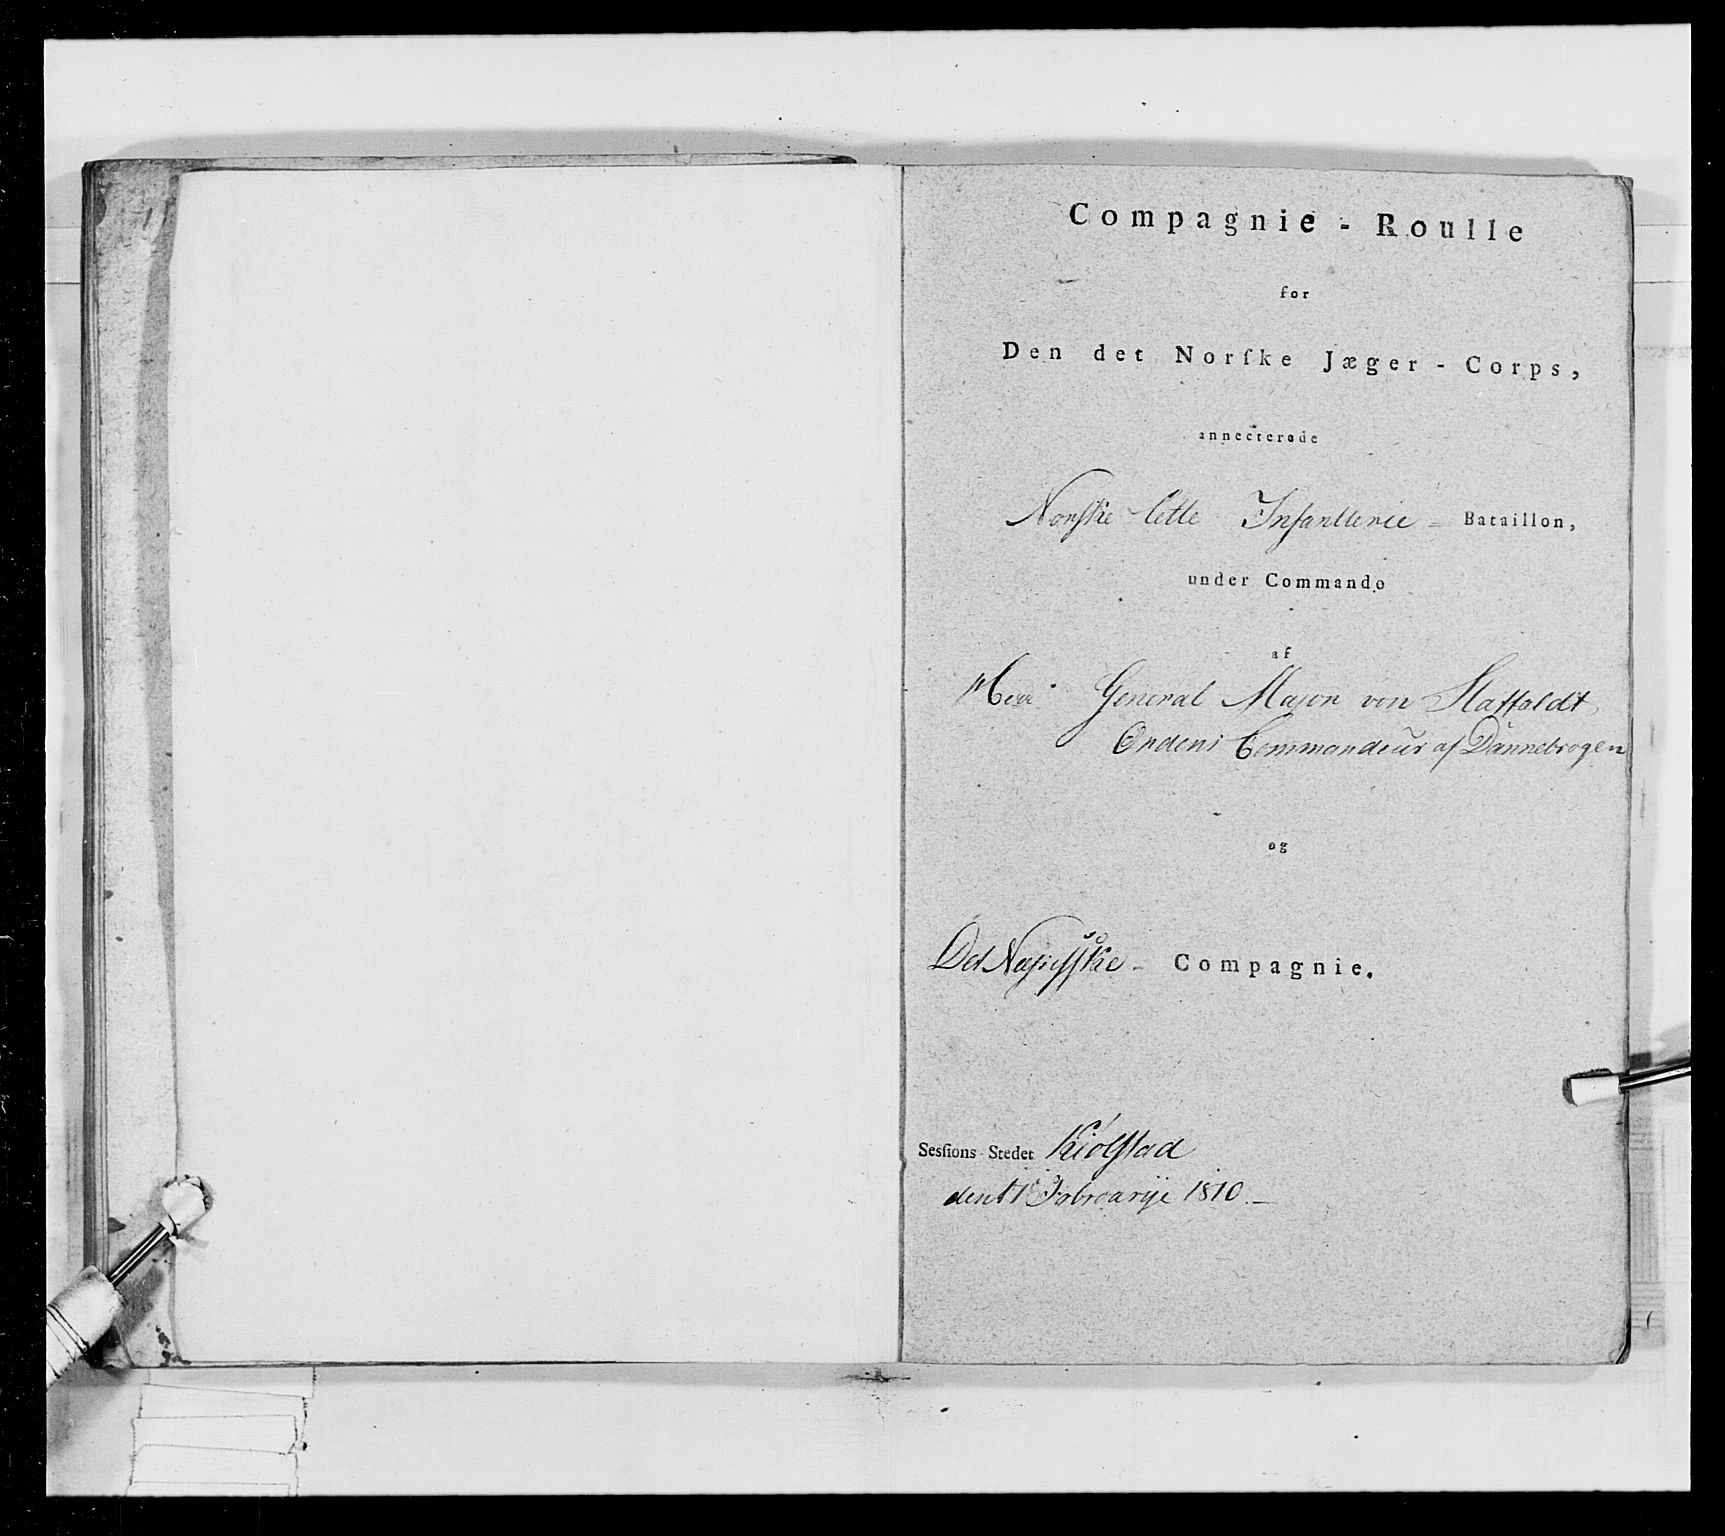 Compagnie - Roulle
for
Den det Norſke Jæger - Corps,
annecterede
Norſke lette Infantterie - Bataillon,
under Commando
af
Herr General Major von Staffeldt,
Ordens Commandeur af Dannebrogen
og
Det Compagnie.
Sesſions Stedet Kiølſtad
Febroarije 1810. -